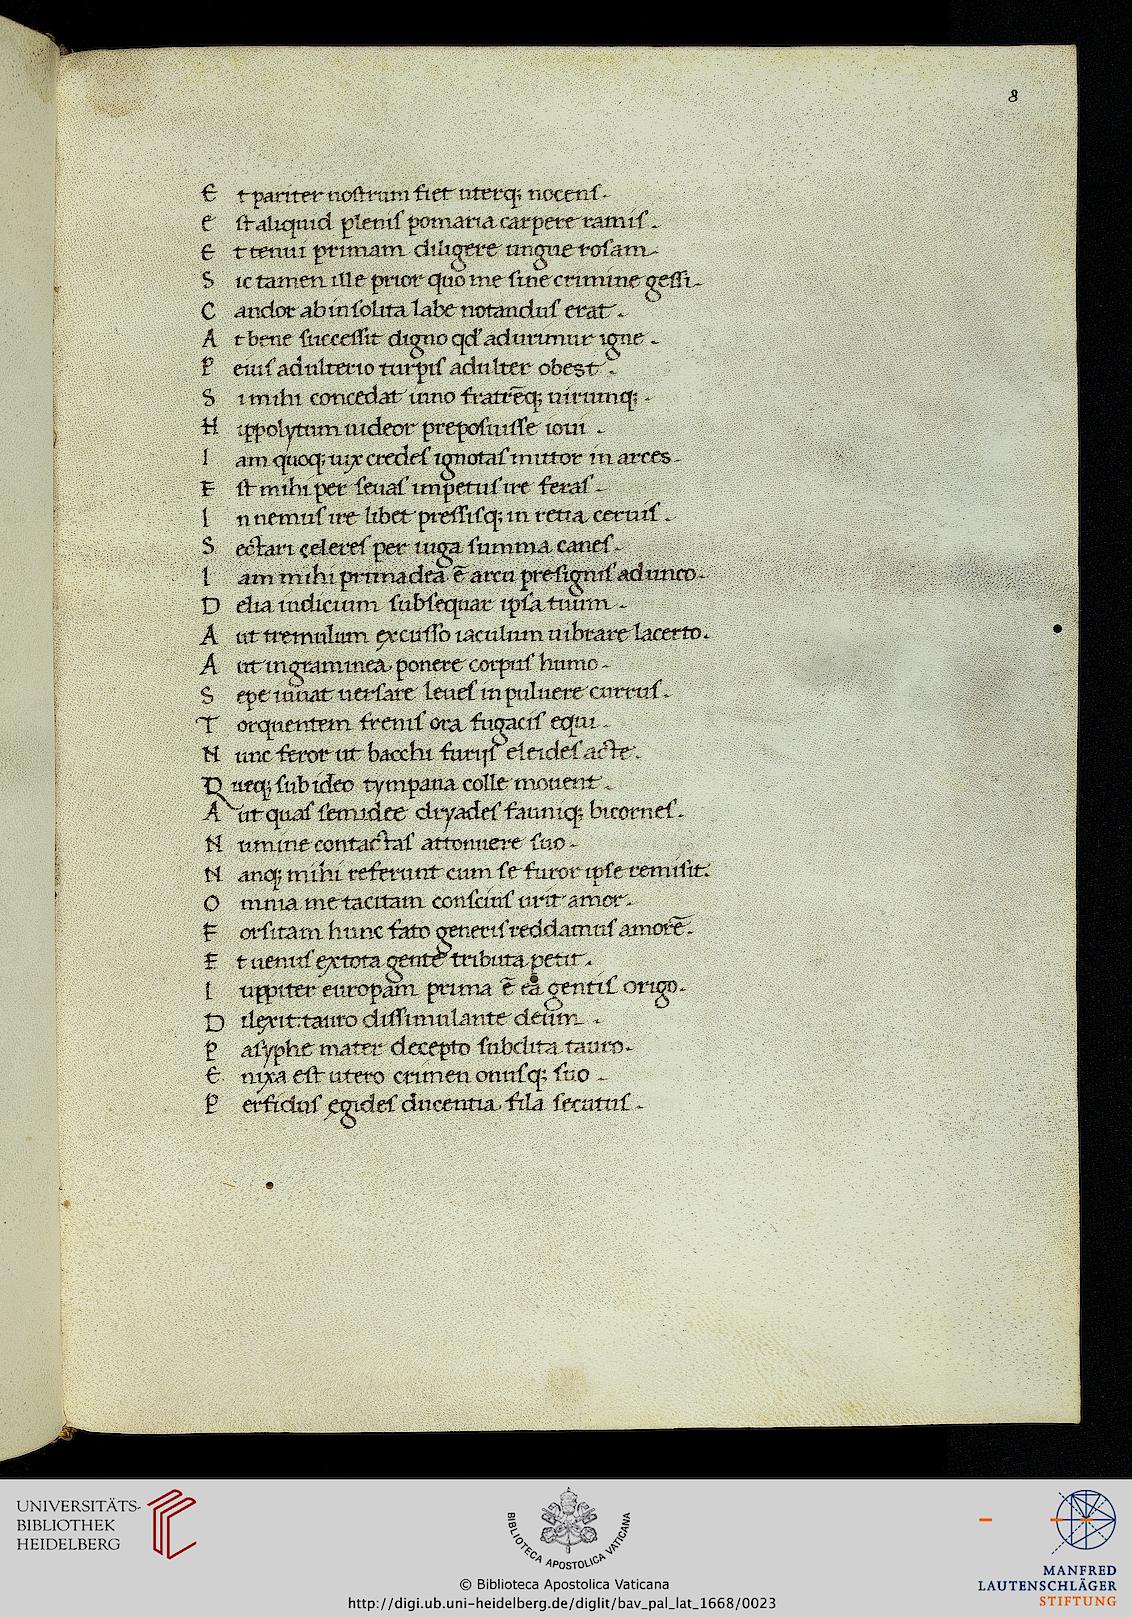 8
Et pariter nostrum fiet uterq; nocens.
Est aliquid plenis pomaria carpere ramis.
Et tenui primam diligere ungue rosam.
Sic tamen ille prior quo me sine crimine gessi.
Candor ab insolita labe notandus erat.
At bene successit digno qđ adurimur igne.
Peius adulterio turpis adulter obest.
Si mihi concedat iuno fratrēq; uirumq;.
Hippolytum uideor preposuisse ioui.
Iam quoq; uix credes ignotas mittor in arces.
Est mihi per seuas impetus ire feras.
In nemus ire libet pressisq; in retia ceruis.
Sectari celeres per iuga summa canes.
Iam mihi prima dea ē arcu presignis adunco.
Delia iudicium subsequar ipsa tuum.
Aut tremulum excusso iaculum uibrare lacerto.
Aut in graminea ponere corpus humo.
Sepe iuuat uersare leues in puluere currus.
Torquentem frenis ora fugacis equi.
Nunc feror ut bacchi furijs eleides acte.
Queq; sub ideo tympana colle mouent.
Aut quas semidee dryades fauniq; bicornes.
Numine contactas attonuere suo.
Nanq; mihi referunt cum se furor ipse remisit.
Omnia me tacitam conscius urit amor.
Forsitam hunc fato generis reddamus amorē.
Et uenus ex tota gente tributa petit.
Iuppiter europam prima ē ea gentis origo.
Dilexit: tauro dissimulante deum.
Pasyphe mater decepto subdita tauro.
Enixa est utero crimen onusq; suo.
Perfidus egides ducentia fila secutus.
UNIVERSITÄTS-
BIBLIOTHEK
HEIDELBERG
BIBLIOTECA APOSTOLICA VATICANA
MANFRED
LAUTENSCHLÄGER
STIFTUNG
© Biblioteca Apostolica Vaticana
http://digi.ub.uni-heidelberg.de/diglit/bav_pal_lat_1668/0023